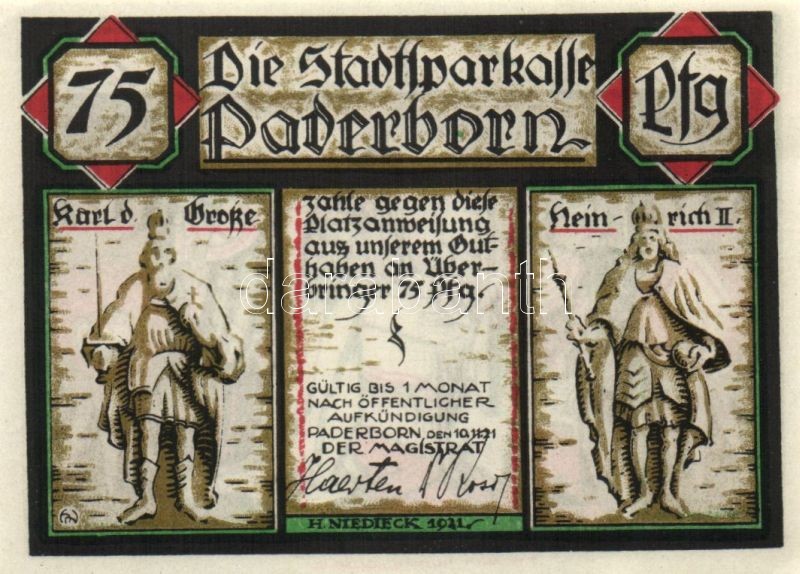 75
Die Stadtsparkasse
Paderborn
Pfg
Karl d. Große
zahle gegen diese
Platzanweisung
aus unserem Gut-
haben an Über-
bringer 75 Pfg.
Hein- rich II.
GÜLTIG BIS 1 MONAT
NACH ÖFFENTLICHER
AUFKÜNDIGUNG
PADERBORN, DEN 10.11.21
DER MAGISTRAT
Haerten
H. NIEDIECK 1921.
darabanth